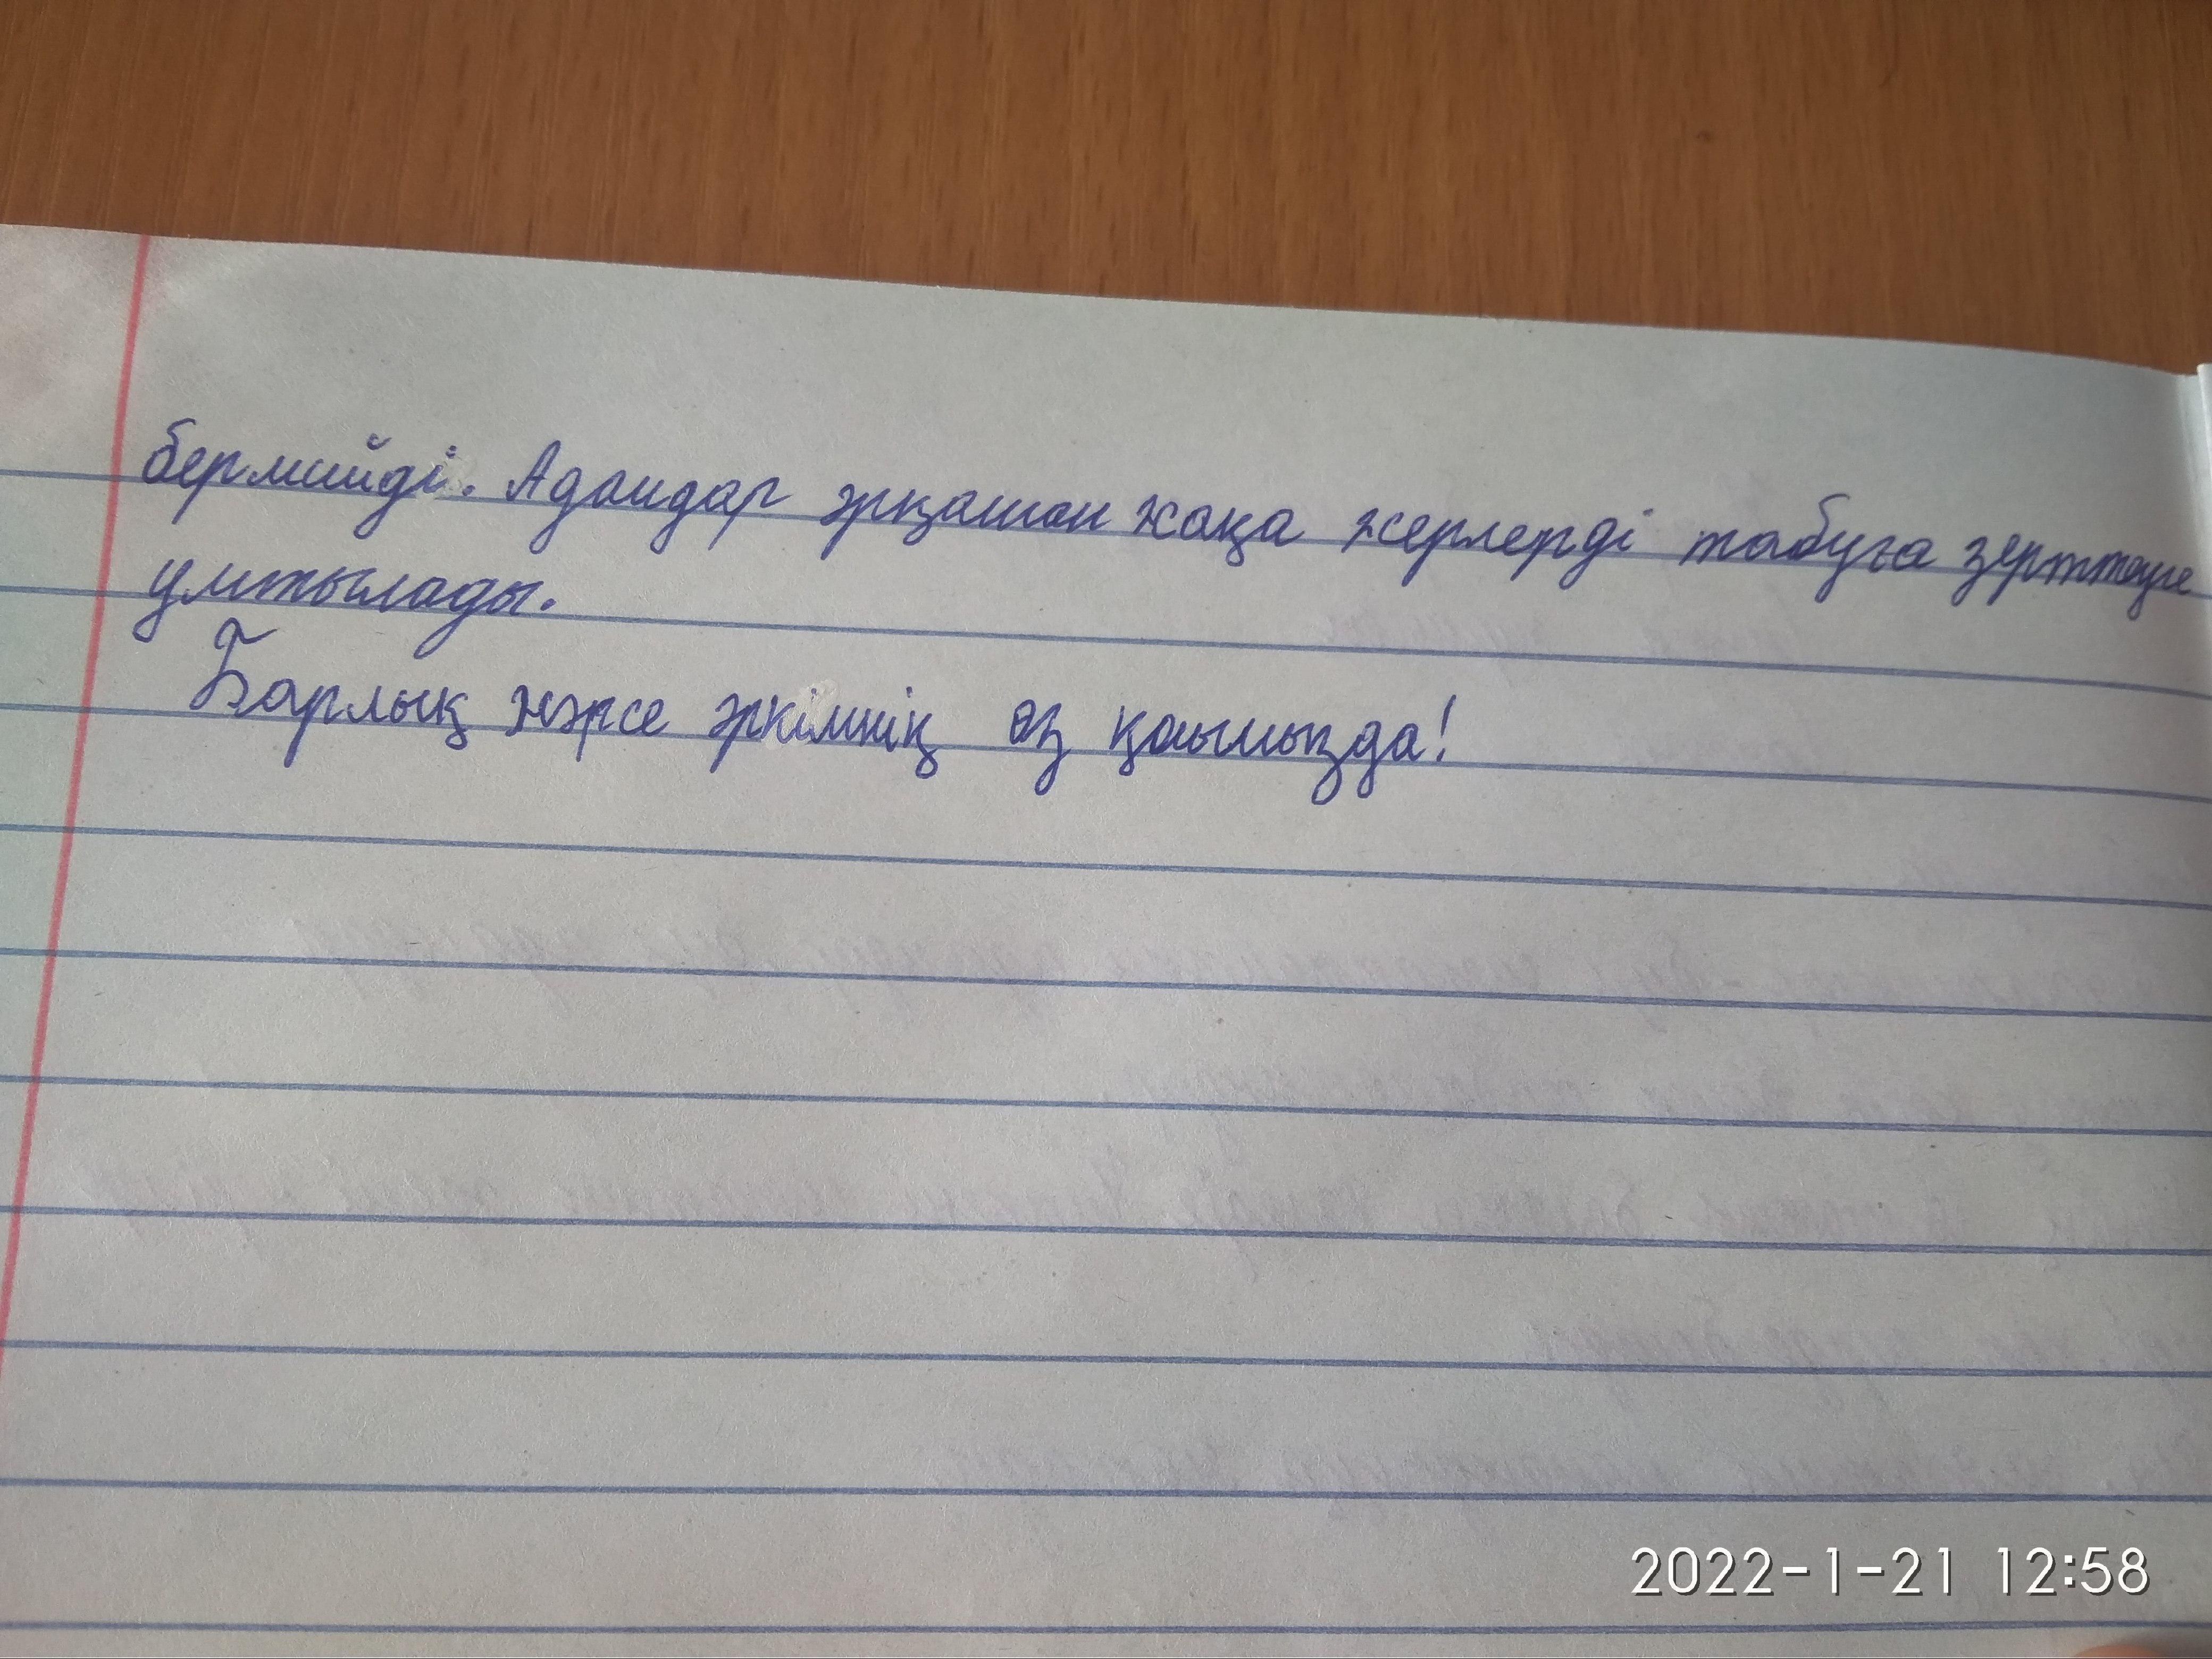 бермийді. Адамдар әрқашан жаңа жерлерді табуға зерттеуге
умтылады.
Барлық нәрсе әркімнің өз қолымызда!
2022-1-21 12:58